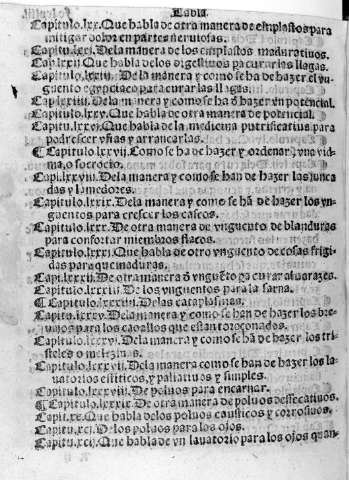 Tabla.
Capitulo.lxx. Que habla de otra manera de emplastos para
mitigar dolor en partes neruiosas.
Capitu.lxxi. De la manera de los emplastos madurativos.
Capitu.lxxii Que habla delos digestiuos pa curar las llagas.
Capitulo.lxxiii. De la manera y como se ha de hazer el vn-
guento egypciaco para curar llagas.
Cap.lxxiiii. De la manera y como se ha d̄ hazer vn potencial.
Capitulo.lxxv. Que habla de otra manera de potencial.
Capitu.lxxvi. Que habla de la medicina putrifactiua para
podrescer vñas y arrancarlas.
¶ Capitulo.lxxvii. Como se ha de hazer y ordenar vna vid-
ma, o socrocio.
Capitu.lxxviii. De la manera y como se han de hazer las
das y lamedores.
Capitulo.lxxix. Dela manera y como se hā de hazer los vn-
guentos para crescer los cascos.
Capitulo.lxxx. De otra manera de vnguento de blanduras
para confortar miembros flacos.
Capitulo.lxxxi. Que habla de otro vnguento de cosas frigi-
das para quemaduras.
Capi.lxxxii. De otra manera d̄ vnguēto pa curar aluarazes.
Capitu.lxxxiii. De los vnguentos para la sarna.
¶ Capitulo.lxxxiiii. De las cataplasmas.
Capitu.lxxxv. Dela manera y como se han de hazer los bre-
uajos para los cauallos que estan toroçonados.
Capitu.lxxxvi. Dela manera y como se hā de hazer los cri-
steles o melezinas.
Capitulo.lxxxvii. Dela manera como se han de hazer los la-
uatorios estiticos, y paliatiuos y simples.
Capitulo.lxxxviii. De poluos para encarnar.
¶ Capitulo.lxxxix. De otra manera de poluos dessecatiuos.
Capit.xc. Que habla delos poluos causticos y corrosiuos.
Capitu.xci. De los poluos para los ojos.
Capitu.xcij. Que habla de vn lauatorio para los ojos quan-